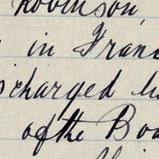 Robinson,
in Franc
scharged
of the Boa